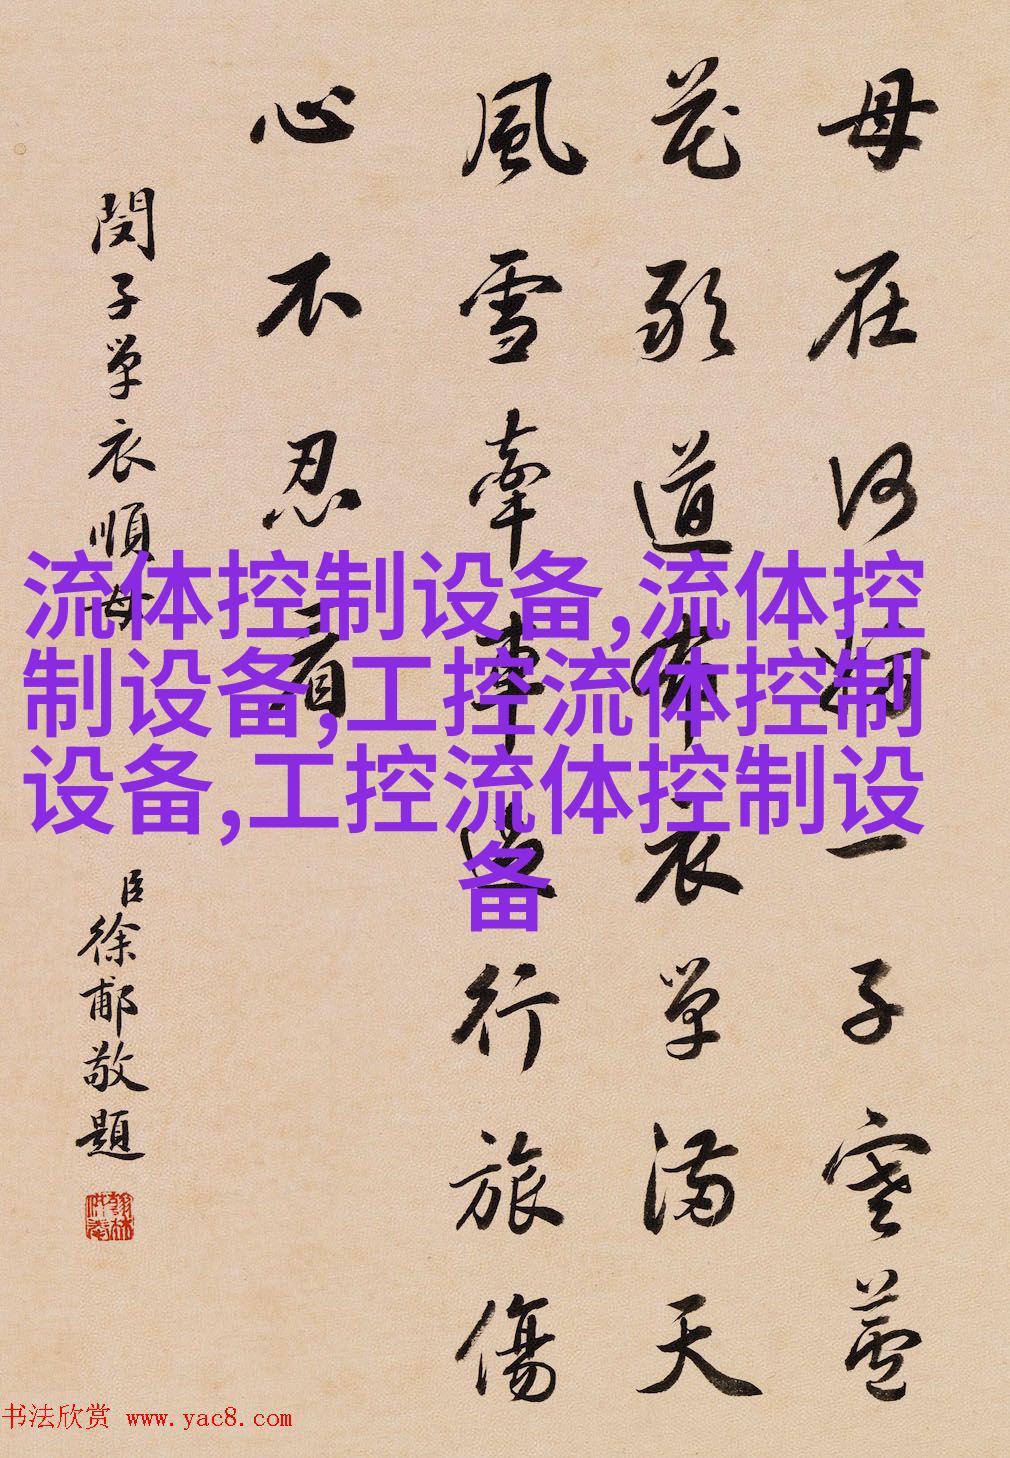 母在何妨一子寒蘆
花敢道体衣單滿天
風雪牽車過行旅傷
心不忍看
閔子單衣順母
臣徐郙敬題
流体控制设备,流体控
制设备,工控流体控制
设备,工控流体控制设
备
书法欣赏 www.yac8.com